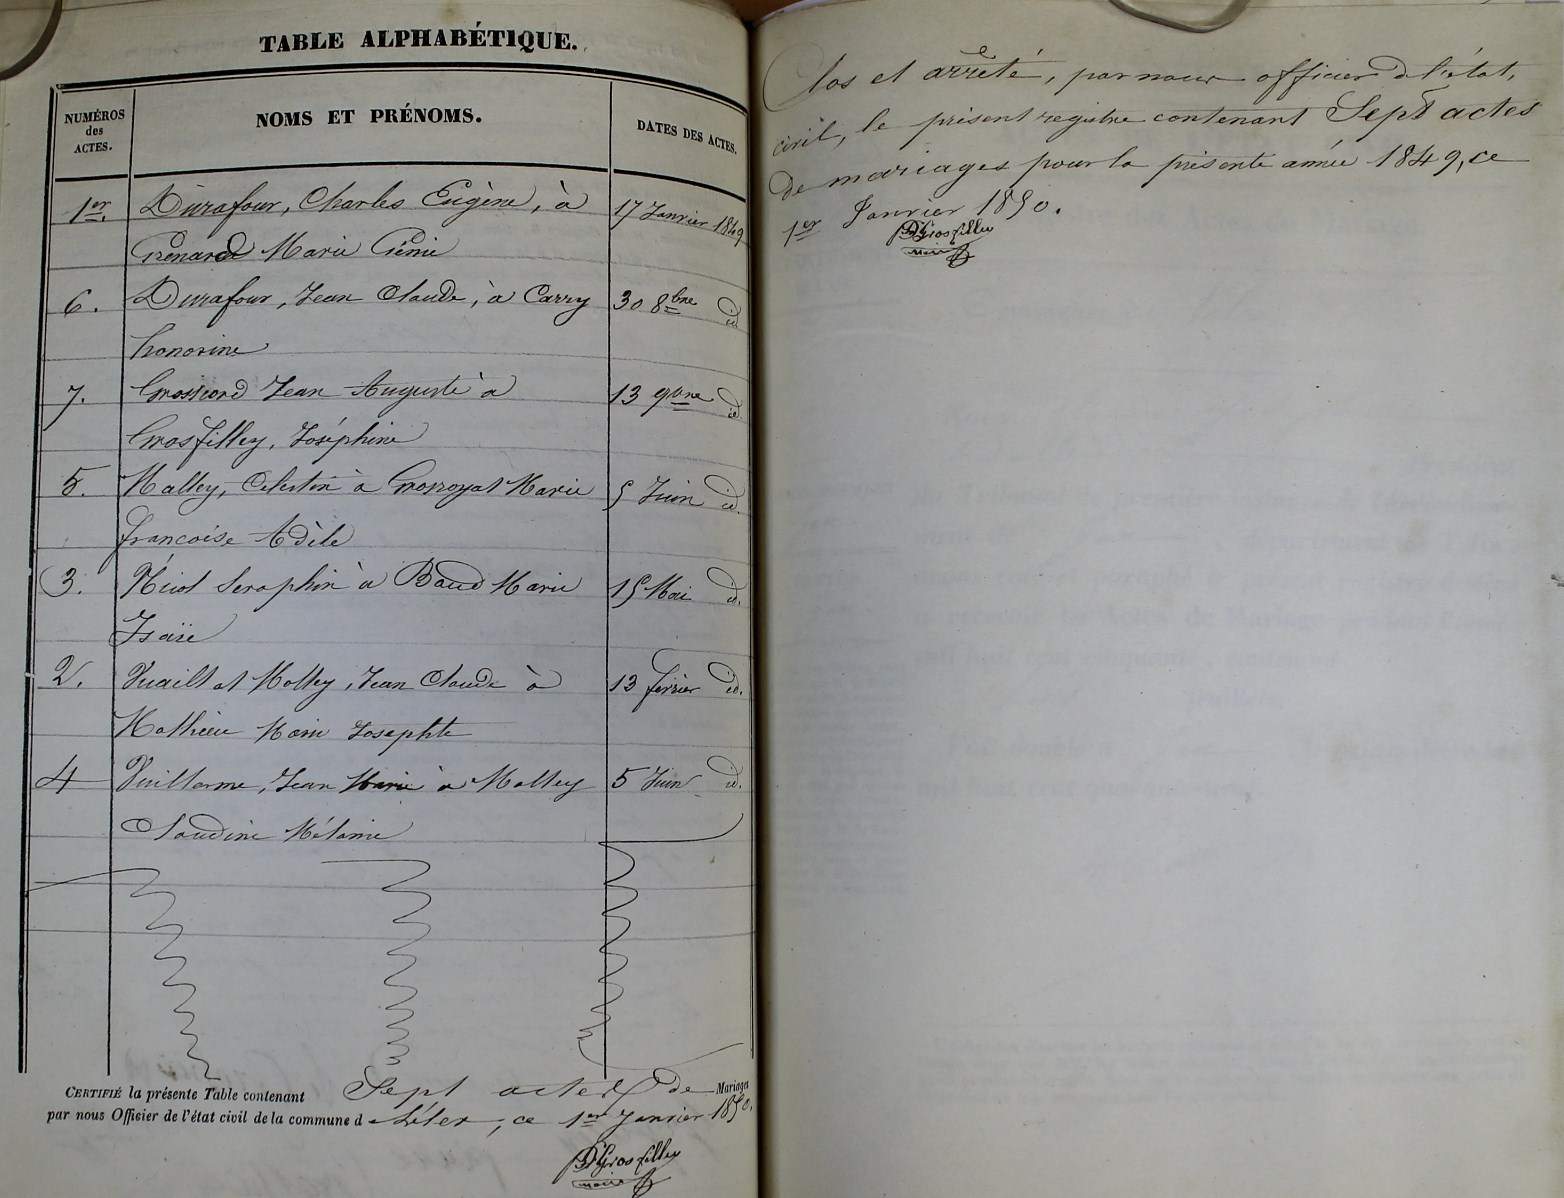 TABLE ALPHABÉTIQUE.
NUMÉROS
des
ACTES.
NOMS ET PRÉNOMS.
DATES DES ACTES.
1er. Durafour, Charles Eugène, à 17 Janvier 1849
Marie
6. Durafour, Jean Claude, à Carry 30 8bre id
honorine
7. Grossiord Jean Auguste à 13 9bre id.
Grosfilley, Joséphine
5. Malley, Celestin à Marie 5 Juin id.
francoise Adèle
3. Seraphin à Baud Marie 15 Mai id.
Isaïe
2. Vuaillat Molley, Jean Claude à 13 fevrier id.
Mathieu Marie Josephte
4 Vuillerme, Jean Marie à Molley 5 Juin id.
Claudine Mélanie
CERTIFIÉ la présente Table contenant Sept actes de Mariages
par nous Officier de l'état civil de la commune d , ce 1er Janvier 1850.
Grosfilley
maire
Clos et arrêté, par nous officier de l'état,
civil, le présent registre contenant Sept actes
de mariages pour la présente année 1849, ce
1er Janvier 1850.
Grosfilley
maire